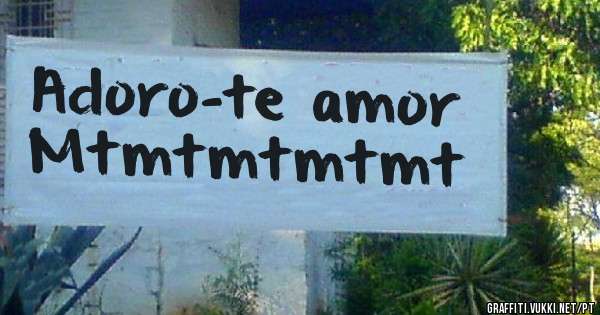 Adoro-te amor
Mtmtmtmtmt
GRAFFITI.VUKKI.NET/PT